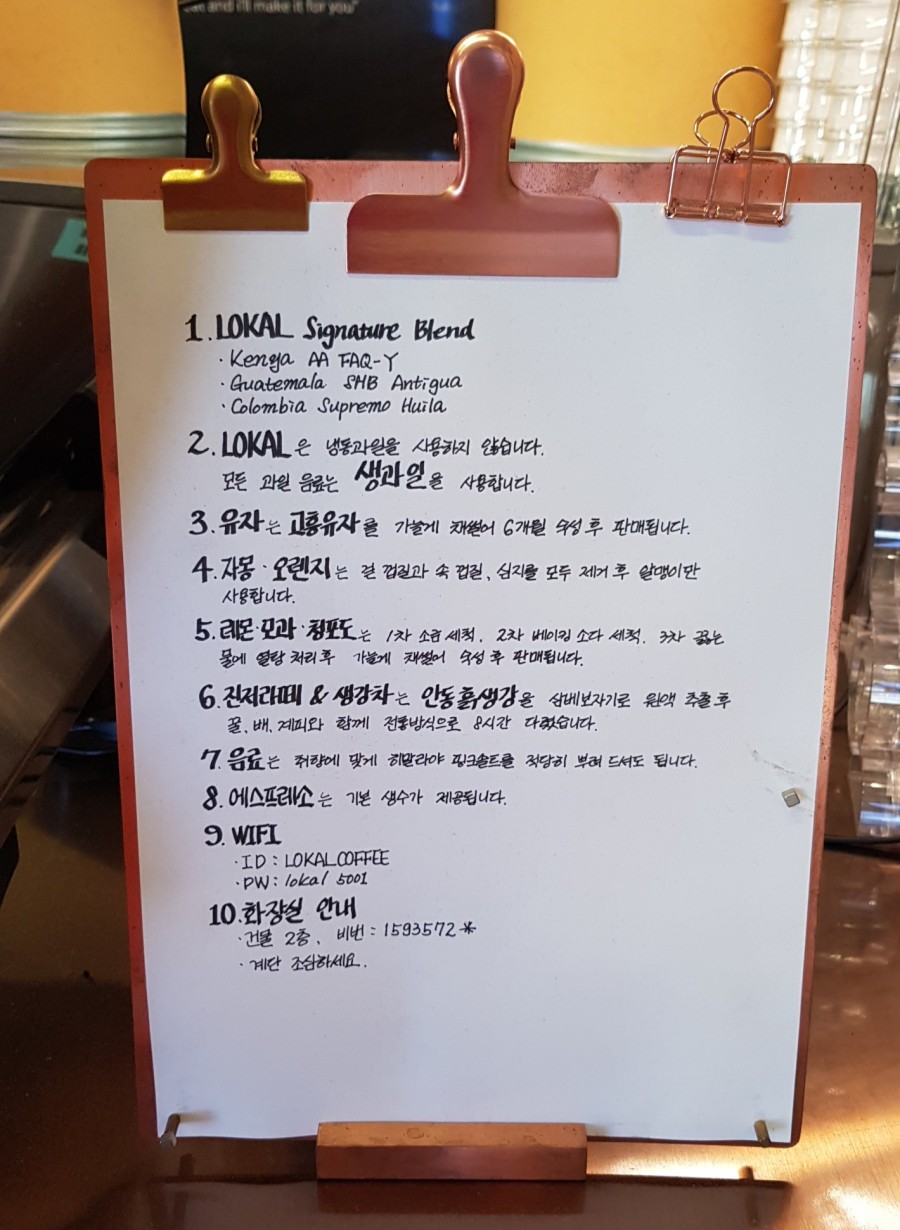 eat and i'll make it for you"
1. LOKAL Signature Blend
· Kenya AA FAQ-Y
· Guatemala SHB Antigua
· Colombia Supremo Huila
2. LOKAL은 냉동과일을 사용하지 않습니다.
모든 과일 음료는 생과일을 사용합니다.
3. 유자는 고흥유자를 가늘게 채썰어 6개월 숙성 후 판매됩니다.
4. 자몽 · 오렌지는 겉 껍질과 속 껍질, 심지를 모두 제거 후 알맹이만
사용합니다.
5. 레몬·모과·청포도는 1차 소금 세척, 2차 베이킹 소다 세척, 3차 끓는
물에 열탕 처리 후 가늘게 채썰어 숙성 후 판매됩니다.
6. 진저라떼 & 생강차는 안동흙생강을 삼베보자기로 원액 추출 후
꿀, 배, 계피와 함께 전통방식으로 8시간 다렸습니다.
7. 음료는 취향에 맞게 히말라야 핑크솔트를 적당히 뿌려 드셔도 됩니다.
8. 에스프레소는 기본 생수가 제공됩니다.
9. WIFI
· ID : LOKALCOFFEE
· PW : lokal 5001
10. 화장실 안내
· 건물 2층, 비번 : 1593572*
· 계단 조심하세요.